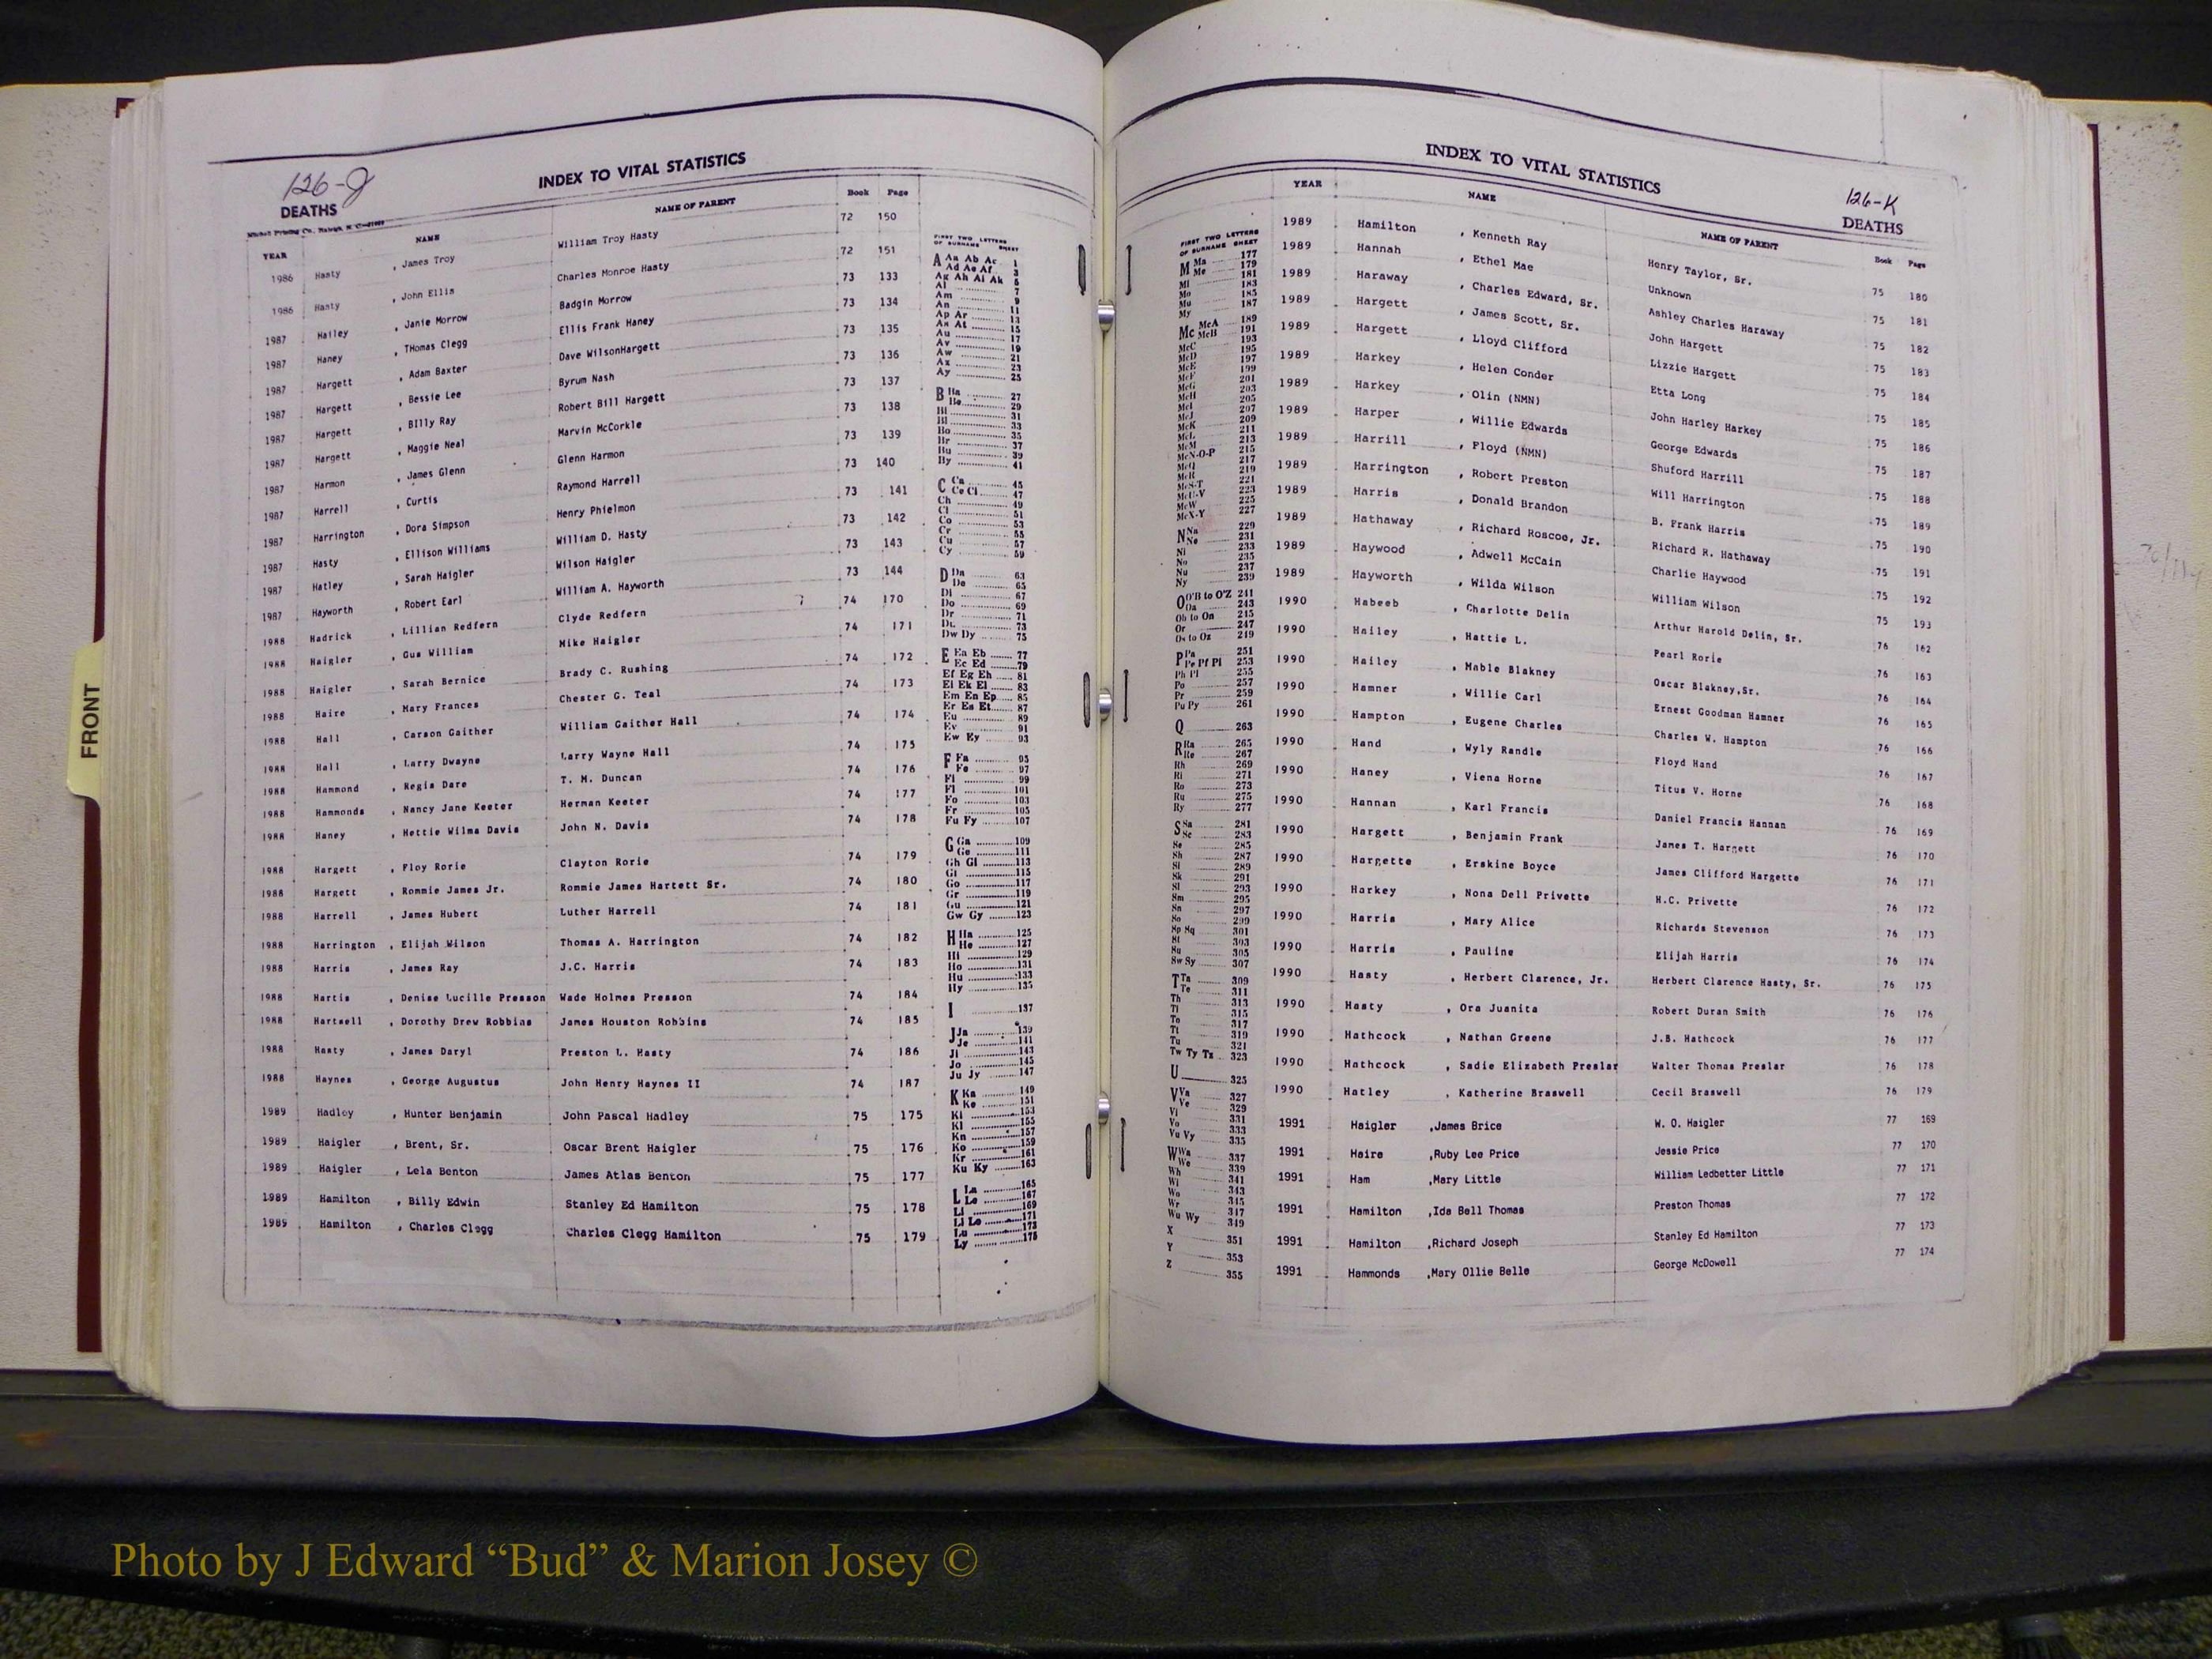 126-J
INDEX TO VITAL STATISTICS
DEATHS
YEAR NAME NAME OF PARENT Book Page
1986 Hasty , James Troy William Troy Hasty 72 150
1986 Hasty , John Ellis Charles Monroe Hasty 72 151
1987 Hailey , Janie Morrow Badgin Morrow 73 133
1987 Haney , THomas Clegg Ellis Frank Haney 73 134
1987 Hargett , Adam Baxter Dave WilsonHargett 73 135
1987 Hargett , Bessie Lee Byrum Nash 73 136
1987 Hargett , BIlly Ray Robert Bill Hargett 73 137
1987 Hargett , Maggie Neal Marvin McCorkle 73 138
1987 Harmon , James Glenn Glenn Harmon 73 139
1987 Harrell , Curtis Raymond Harrell 73 140
1987 Harrington , Dora Simpson Henry Phielmon 73 141
1987 Hasty , Ellison Williams William D. Hasty 73 142
1987 Hatley , Sarah Haigler Wilson Haigler 73 143
1987 Hayworth , Robert Earl William A. Hayworth 73 144
1988 Hadrick , Lillian Redfern Clyde Redfern 74 170
1988 Haigler , Gus William Mike Haigler 74 171
1988 Haigler , Sarah Bernice Brady C. Rushing 74 172
1988 Haire , Mary Frances Chester G. Teal 74 173
1988 Hall , Carson Gaither William Gaither Hall 74 174
1988 Hall , Larry Dwayne Larry Wayne Hall 74 175
1988 Hammond , Regis Dare T. M. Duncan 74 176
1988 Hammonds , Nancy Jane Keeter Herman Keeter 74 177
1988 Haney , Hettie Wilma Davis John N. Davis 74 178
1988 Hargett , Floy Rorie Clayton Rorie 74 179
1988 Hargett , Rommie James Jr. Rommie James Hartett Sr. 74 180
1988 Harrell , James Hubert Luther Harrell 74 181
1988 Harrington , Elijah Wilson Thomas A. Harrington 74 182
1988 Harris , James Ray J.C. Harris 74 183
1988 Hartis , Denise Lucille Presson Wade Holmes Presson 74 184
1988 Hartsell , Dorothy Drew Robbins James Houston Robbins 74 185
1988 Hasty , James Daryl Preston L. Hasty 74 186
1988 Haynes , George Augustus John Henry Haynes II 74 187
1989 Hadley , Hunter Benjamin John Pascal Hadley 75 175
1989 Haigler , Brent, Sr. Oscar Brent Haigler 75 176
1989 Haigler , Lela Benton James Atlas Benton 75 177
1989 Hamilton , Billy Edwin Stanley Ed Hamilton 75 178
1989 Hamilton , Charles Clegg Charles Clegg Hamilton 75 179
FIRST TWO LETTERS
OF SURNAME SHEET
A Aa Ab Ac 1
Ad Ae Af 3
Ag Ah Ai Ak 5
Al 7
Am 9
An 11
Ap Ar 13
As At 15
Au 17
Av 19
Aw 21
Ax 23
Ay 25
B Ba 27
Be 29
Bi 31
Bl 33
Bo 35
Br 37
Bu 39
By 41
C Ca 45
Ce Ci 47
Ch 49
Cl 51
Co 53
Cr 55
Cu 57
Cy 59
D Da 63
De 65
Di 67
Do 69
Dr 71
Du 73
Dw Dy 75
E Ea Eb 77
Ec Ed 79
Ef Eg Eh 81
Ei Ek El 83
Em En Ep 85
Er Es Et 87
Eu 89
Ev 91
Ew Ey 93
F Fa 95
Fe 97
Fi 99
Fl 101
Fo 103
Fr 105
Fu Fy 107
G Ga 109
Ge 111
Gh Gi 113
Gl 115
Go 117
Gr 119
Gu 121
Gw Gy 123
H Ha 125
He 127
Hi 129
Ho 131
Hu 133
Hy 135
I 137
J Ja 139
Je 141
Ji 143
Jo 145
Ju Jy 147
K Ka 149
Ke 151
Ki 153
Kl 155
Kn 157
Ko 159
Kr 161
Ku Ky 163
L La 165
Le 167
Li 169
Ll Lo 171
Lu 173
Ly 175
INDEX TO VITAL STATISTICS
126-K
DEATHS
YEAR NAME NAME OF PARENT Book Page
1989 Hamilton , Kenneth Ray Henry Taylor, Sr. 75 180
1989 Hannah , Ethel Mae Unknown 75 181
1989 Haraway , Charles Edward, Sr. Ashley Charles Haraway 75 182
1989 Hargett , James Scott, Sr. John Hargett 75 183
1989 Hargett , Lloyd Clifford Lizzie Hargett 75 184
1989 Harkey , Helen Conder Etta Long 75 185
1989 Harkey , Olin (NMN) John Harley Harkey 75 186
1989 Harper , Willie Edwards George Edwards 75 187
1989 Harrill , Floyd (NMN) Shuford Harrill 75 188
1989 Harrington , Robert Preston Will Harrington 75 189
1989 Harris , Donald Brandon B. Frank Harris 75 190
1989 Hathaway , Richard Roscoe, Jr. Richard R. Hathaway 75 191
1989 Haywood , Adwell McCain Charlie Haywood 75 192
1989 Hayworth , Wilda Wilson William Wilson 75 193
1990 Habeeb , Charlotte Delin Arthur Harold Delin, Sr. 76 162
1990 Hailey , Hattie L. Pearl Rorie 76 163
1990 Hailey , Mable Blakney Oscar Blakney,Sr. 76 164
1990 Hamner , Willie Carl Ernest Goodman Hamner 76 165
1990 Hampton , Eugene Charles Charles W. Hampton 76 166
1990 Hand , Wyly Randle Floyd Hand 76 167
1990 Haney , Viena Horne Titus V. Horne 76 168
1990 Hannan , Karl Francis Daniel Francis Hannan 76 169
1990 Hargett , Benjamin Frank James T. Hargett 76 170
1990 Hargette , Erskine Boyce James Clifford Hargette 76 171
1990 Harkey , Nona Dell Privette H.C. Privette 76 172
1990 Harris , Mary Alice Richards Stevenson 76 173
1990 Harris , Pauline Elijah Harris 76 174
1990 Hasty , Herbert Clarence, Jr. Herbert Clarence Hasty, Sr. 76 175
1990 Hasty , Ora Juanita Robert Duran Smith 76 176
1990 Hathcock , Nathan Greene J.B. Hathcock 76 177
1990 Hathcock , Sadie Elizabeth Preslar Walter Thomas Preslar 76 178
1990 Hatley , Katherine Braswell Cecil Braswell 76 179
1991 Haigler ,James Brice W. O. Haigler 77 169
1991 Haire ,Ruby Lee Price Jessie Price 77 170
1991 Ham ,Mary Little William Ledbetter Little 77 171
1991 Hamilton ,Ida Bell Thomas Preston Thomas 77 172
1991 Hamilton ,Richard Joseph Stanley Ed Hamilton 77 173
1991 Hammonds ,Mary Ollie Belle George McDowell 77 174
FIRST TWO LETTERS
OF SURNAME SHEET
M Ma 177
Me 179
Mi 181
Ml 183
Mo 185
Mu 187
My
Mc McA 189
McB 191
McC 193
McD 195
McE 197
McF 199
McG 201
McH 203
McI 205
McJ 207
McK 209
McL 211
McM 213
McN-O-P 215
McQ 217
McR 219
McS-T 221
McU-V 223
McW 225
McX-Y 227
N Na 229
Ne 231
Ni 233
No 235
Nu 237
Ny 239
O O'B to O'Z 241
Oa 243
Ob to On 245
Or 247
Os to Oz 249
P Pa 251
Pe Pf Pi 253
Ph Pl 255
Po 257
Pr 259
Pu Py 261
Q 263
R Ra 265
Re 267
Rh 269
Ri 271
Ro 273
Ru 275
Ry 277
S Sa 281
Sc 283
Se 285
Sh 287
Si 289
Sk 291
Sl 293
Sm 295
Sn 297
So 299
Sp Sq 301
St 303
Su 305
Sw Sy 307
T Ta 309
Te 311
Th 313
Ti 315
To 317
Tr 319
Tu 321
Tw Ty Tz 323
U 325
V Va 327
Ve 329
Vi 331
Vo 333
Vu Vy 335
W Wa 337
We 339
Wh 341
Wi 343
Wo 345
Wr 347
Wu Wy 349
X 351
Y 353
Z 355
FRONT
Photo by J Edward “Bud” & Marion Josey ©